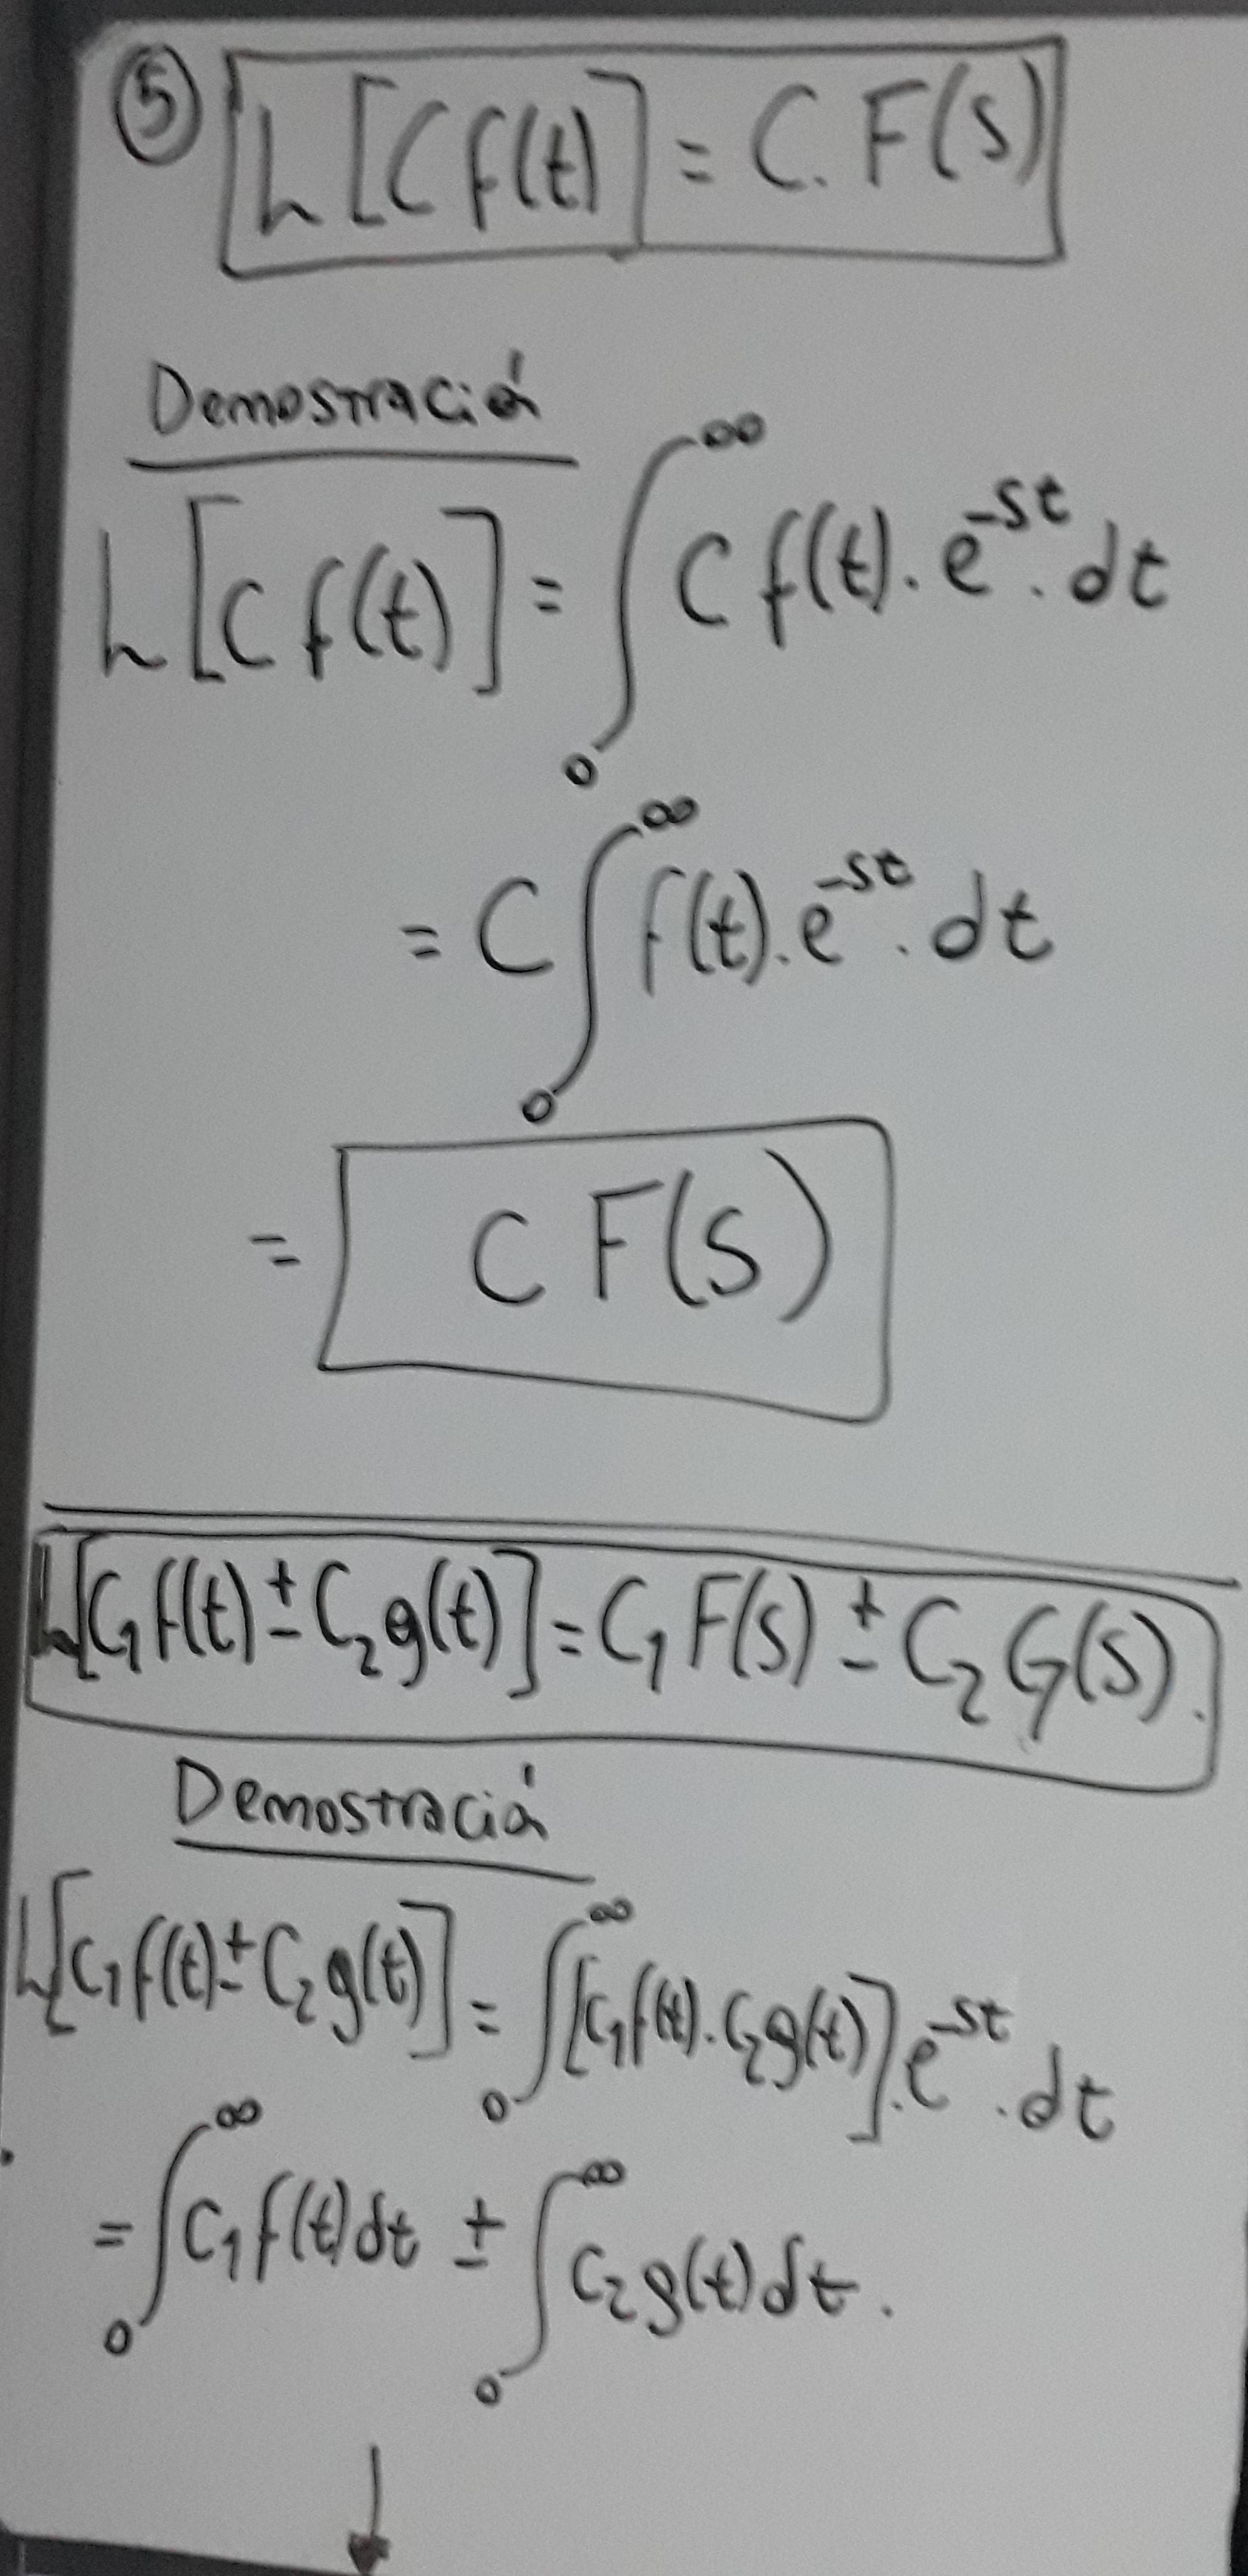 ⑤ L[C f(t)] = C. F(s)
Demostración
L[C f(t)] = ∫₀^∞ C f(t). e^-st. dt
= C ∫₀^∞ f(t). e^-st. dt
= C F(s)
L[C₁f(t) ± C₂g(t)] = C₁F(s) ± C₂G(s).
Demostración
L[C₁f(t) ± C₂g(t)] = ∫₀^∞ [C₁f(t). C₂g(t)]. e^-st. dt
= ∫₀^∞ C₁f(t)dt ± ∫₀^∞ C₂g(t)dt.
↓